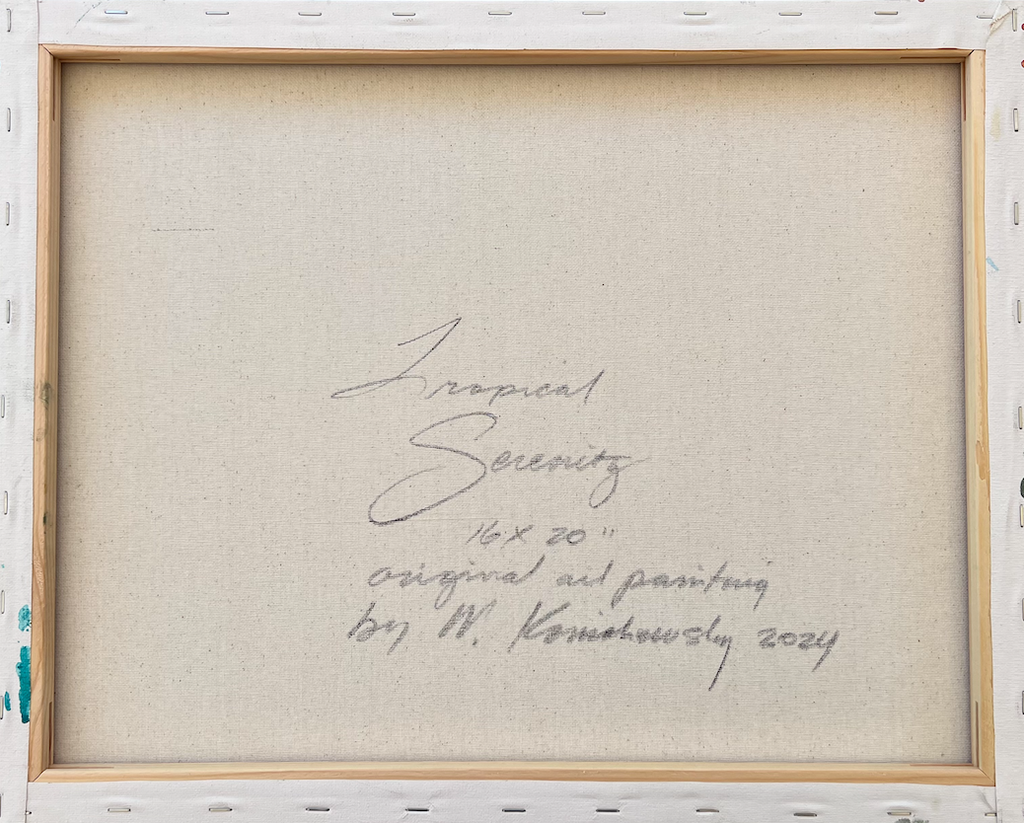 Tropical
Serenity
16 X 20"
original oil painting
by W. 2024